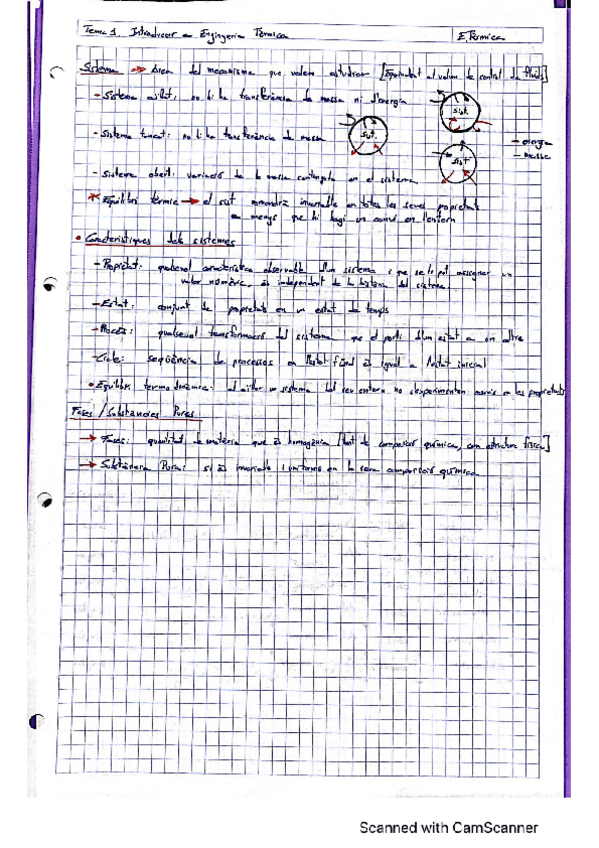 Tema 1. Introducció a Enginyeria Tèrmica E.Tèrmica
Sistema → Àrea del mecanisme que volem estudiar [Equivalent al volum de control de fluids]
- Sistema aïllat: no hi ha transferència de massa ni d'energia
Sist.
- Sistema tancat: no hi ha transferència de massa
Sist.
- energia
- massa
Sist
- Sistema obert: variació de la massa continguda en el sistema
* Equilibri tèrmic → el sist. romandrà invariable en totes les seves propietats
a menys que hi hagi un canvi en l'entorn
• Característiques dels sistemes
- Propietat: qualsevol característica observable d'un sistema i que se li pot assignar un
valor numèric, és independent de la història del sistema.
- Estat: conjunt de propietats en un estat de temps
- Procés: qualsevol transformació del sistema que el porti d'un estat a un altre
- Cicle: seqüència de processos on l'estat final és igual a l'estat inicial
• Equilibri termodinàmic: al aïllar un sistema del seu entorn no s'experimenten canvis en les propietats
Fases / Substàncies Pures
→ Fases: quantitat de matèria que és homogènia [tant de composició química, com estructura física]
→ Substància Pura: si és invariable i uniforme en la seva composició química
Scanned with CamScanner